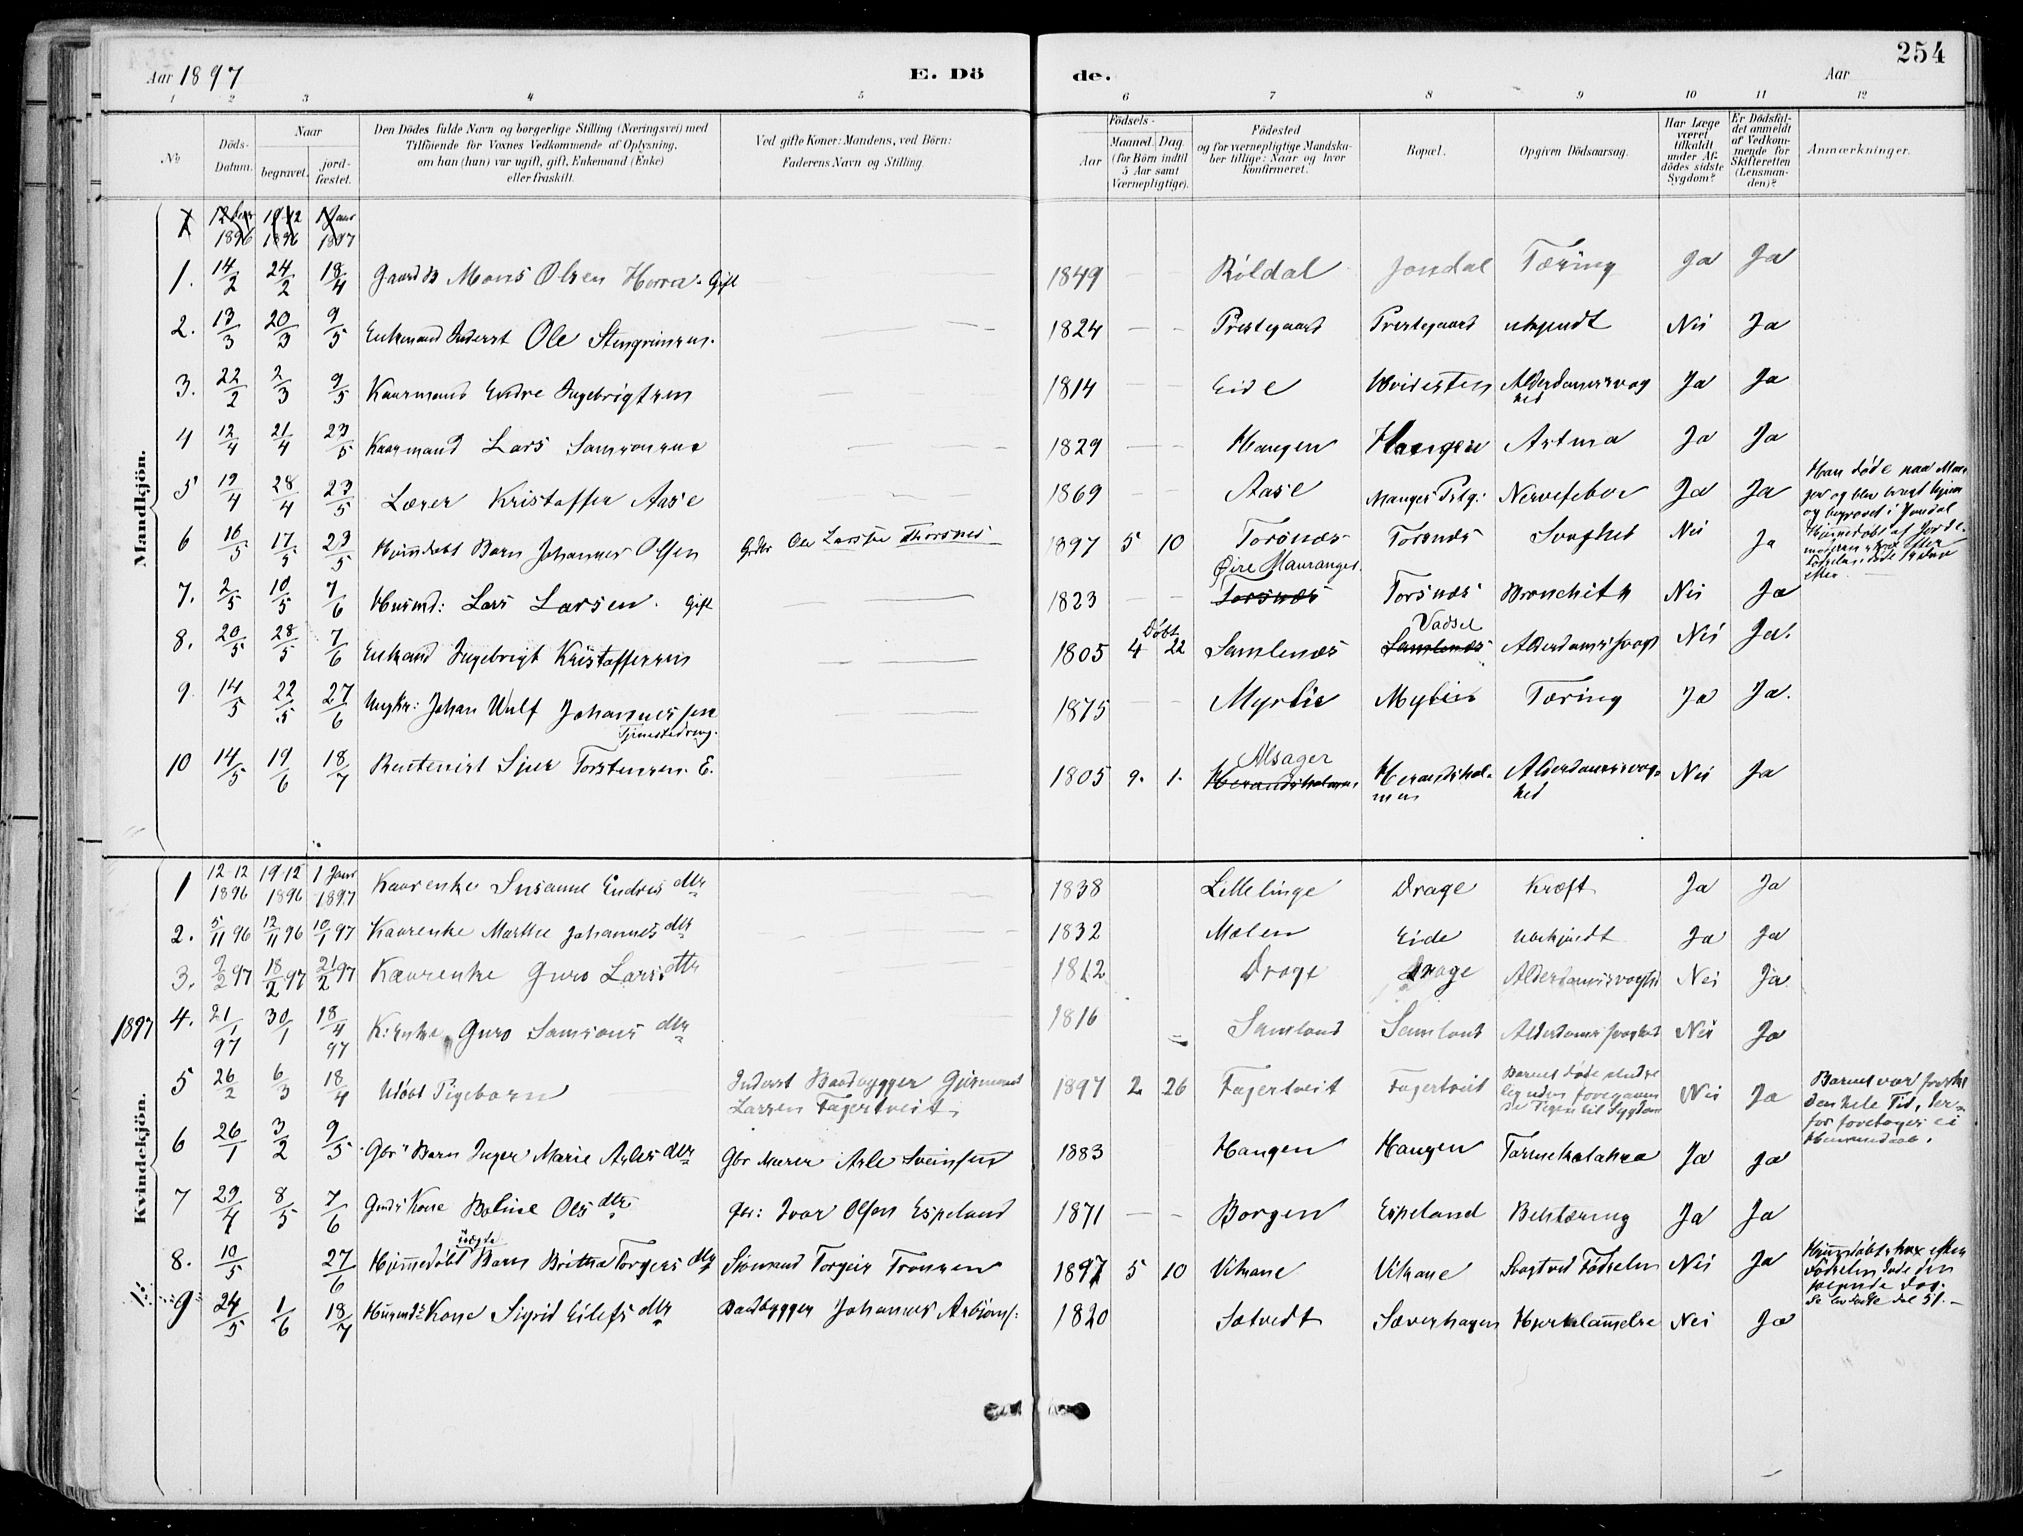 254
Aar 1897 E. Dö de. Aar
1 2 3 4 5 6 7 8 9 10 11 12
№
Döds-Datum.
Naar begravet. jordfæstet.
Den Dödes fulde Navn og borgerlige Stilling (Næringsvei) med
Tilföiende for Voxnes Vedkommende af Oplysning,
om han (hun) var ugift, gift, Enkemand (Enke)
eller fraskilt.
Ved gifte Koner: Mandens, ved Börn:
Faderens Navn og Stilling.
Födsels-
Aar Maaned. Dag.
(for Börn indtil 5 Aar samt Værnepligtige).
Födested
og for værnepligtige Mandskaber tillige: Naar og hvor konfirmeret.
Bopæl.
Opgiven Dödsaarsag.
Har Læge været tilkaldt under Afdödes sidste Sygdom?
Er Dödsfaldet anmeldt af Vedkommende for Skifteretten (Lensmanden)?
Anmærkninger.
Mandkjön.
1 1896 19 12 1896 1 Janr 1897
1. 14/2 24/2 18/4 Gaardb Mons Olsen Gift 1849 Röldal Jondal Tæring Ja Ja
2. 13/3 20/3 9/5 Enkemand Inderst Ole Stengrimsen. 1824 Prestegaard Prestegaard ukjendt Nei Ja
3. 22/2 2/3 9/5 Kaarmand Endre Ingebrigtsen 1814 Eide Hvidesten Alderdomssvaghed Ja Ja
4 12/4 21/4 23/5 Kaarmand Lars Samsonsen 1829 Haugen Haugen Astma Ja Ja
5 19/4 28/4 23/5 Lærer Kristoffer Aase 1869 Aase Manger Prtg: Nervefeber Ja Ja Han döde paa Manger og blev bragt hjem og begravet i Jondal
6 16/5 17/5 23/5 Hjemdøbt Barn Johannes Olsen Ole Larssen Thorsnes 1897 5 10 Torsnæs Torsnæs Svaghed Nei Ja Hjemmedøbt af Jordemoderen strax efter Fødselen døde
7. 2/5 10/5 7/6 Husmd: Lars Larsen. Gift 1823 Øire Mauranger. Torsnæs Torsnæs Bronchitis Nei Ja
8. 20/5 28/5 7/6 Enkemd Ingebrigt Kristoffersen 1805 Døbt 4 22 Samlenæs Vadsel Samlenæs Alderdomssvagh Nei Ja.
9. 14/5 22/5 27/6 Ungkr: Johan Wulf Johannessen Tjenestedreng. 1875 Myrlie Myrlien Tæring Ja Ja.
10 14/5 19/6 18/7 Rentenist Sjur Torstensen. E. 1805 9. 1. Alsager Herandsholmen. Herandsholmen Alderdomssvaghed Nei Ja
1897 Kvindekjön.
1 12 12 1896 19 12 1896 1 Janr 1897 Kaarenke Susanne Endresdtr 1838 Lillelinge Drage Kræft Ja Ja
2. 5/11 96 12/11 96 10/1 97 Kaarenke Marthe Johannesdtr 1832 Mælen Eide Ubekjendt Ja Ja
3. 9/2 97 18/2 97 21/2 97 Kaarenke Guro Larsdtr 1812 Drage Drage Alderdomssvaghd Nei Ja
4. 21/1 97 30/1 18/4 97 K: Enke Guro Samsonsdtr 1816 Samland Samland Alderdomssvaghed Nei Ja
5 26/2 6/3 18/4 Udöbt Pigebarn Inderst Baadbygger Gjermund Larsen Fagertveit. 1897 2 26 Fagertveit Fagertveit Barnet døde pludselig uden foregaaende Tegn til Sygdom Nei Ja Barnet var friskt den hele Tid, derfor foretoges ei Hjemmedaab.
6 26/1 3/2 9/5 Gbr Barn Inger Marie Asledtr Gbr Murer Asle Sveinsen 1883 Haugen Haugen Tarmekatahr Ja Ja
7 29/4 8/5 7/6 Gmds Kone Boline Olsdtr gbr: Ivar Olsen Espeland 1871 Borgen Espeland Benttæring Ja Ja
8. 10/5 27/6 Hjemmedøbt uægte Barn Britha Torgersdtr Sømand Torgeir Tronsen 1897 5 10 Vikane Vikane Svag ved Fødselen Nei Ja Hjemmdøbt strax efter Fødselen døde den følgende Dag.
9 24/5 1/6 18/7 Husmds Kone Sigrid Eilefsdtr Baadbygger Johannes Asbjørns: 1820 Sætvedt Sæverhagen Hjertelammelse Nei Ja